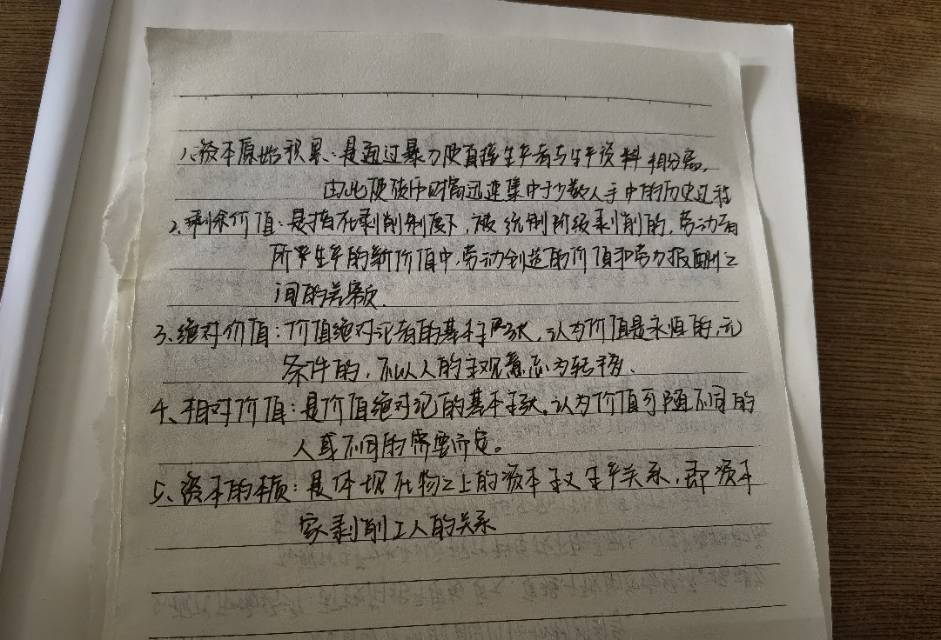 1、资本原始积累:是通过暴力使直接生产者与生产资料相分离,
由此使货币财富迅速集中于少数人手中的历史过程
2、剩余价值:是指在剥削制度下,被统制阶级剥削的,劳动者
所生产的新价值中,劳动创造的价值和劳力报酬之
间的差额.
3、绝对价值:价值绝对论者的基本主张,认为价值是永恒的,无
条件的,不以人的主观意志为转移.
4、相对价值:是价值绝对论的基本主张,认为价值可随不同的
人或不同的需要而定。
5、资本的本质:是体现在物之上的资本主义生产关系,即资本
家剥削工人的关系